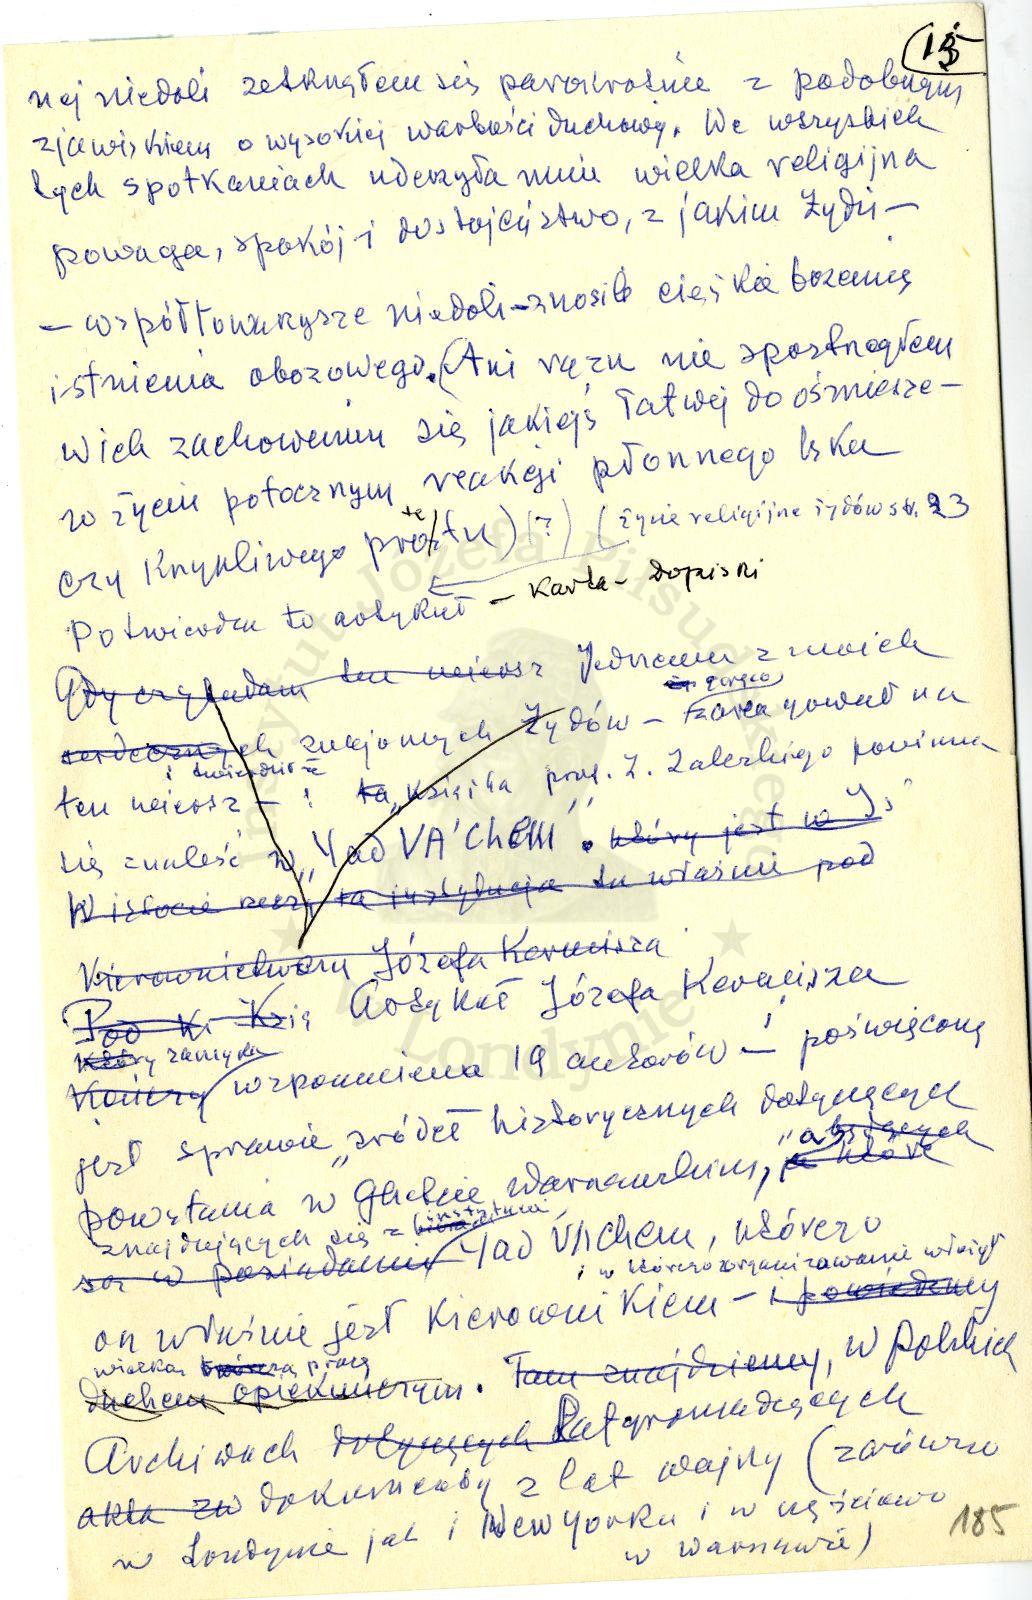 15
nej niedoli zetknąłem się parokrotnie z podobnym
zjawiskiem o wysokiej wartości duchowej. We wszystkich
tych spotkaniach uderzyła mnie wielka religijna
powaga, spokój i dostojeństwo, z jakim Żydzi –
– współtowarzysze niedoli – znosili ciężkie brzemię
istnienia obozowego. (Ani razu nie spostrzegłem
w ich zachowaniu się jakiejś łatwej do ośmiesze–
w życiu potocznym reakcji płonnego lęku
czy krzykliwego protestu) (?) (życie religijne żydów str. 23
Potwierdza to artykuł – Karta – Dopiski
Gdy czytałem ten wiersz jednemu z moich
serdecznych znajomych Żydów – gorąco zareagował na
ten wiersz – i stwierdził: ta "książka prof. Z. Zaleskiego powinna
się znaleść w "Yad VA'CHEM". który jest w Is
W istocie rzeczy ta instytucja tu właśnie pod
kierownictwem Józefa Kermisza
Pod ki Książ Artykuł Józefa Kermisza
który zamyka
kończy wspomnienia 19 autorów – poświęcony
jest sprawie "źródeł historycznych dotyczących
powstania w Ghetcie warszawskim, "a które
znajdujących się z instytucji
są w posiadaniu Yad VACHEM, którego
i w którego zorganizowanie włożył
on właśnie jest kierownikiem – i powiedzmy
wielką twórczą pracę
duchem opiekuńczym. Tam znajdziemy, w Polskich
Archiwach dotyczących zatgromadzących
akta zw dokumenty z lat wojny (zarówno
w Londynie jak i New Yorku i w częściowo
w Warszawie)
185
Instytut Józefa Piłsudskiego
w Londynie